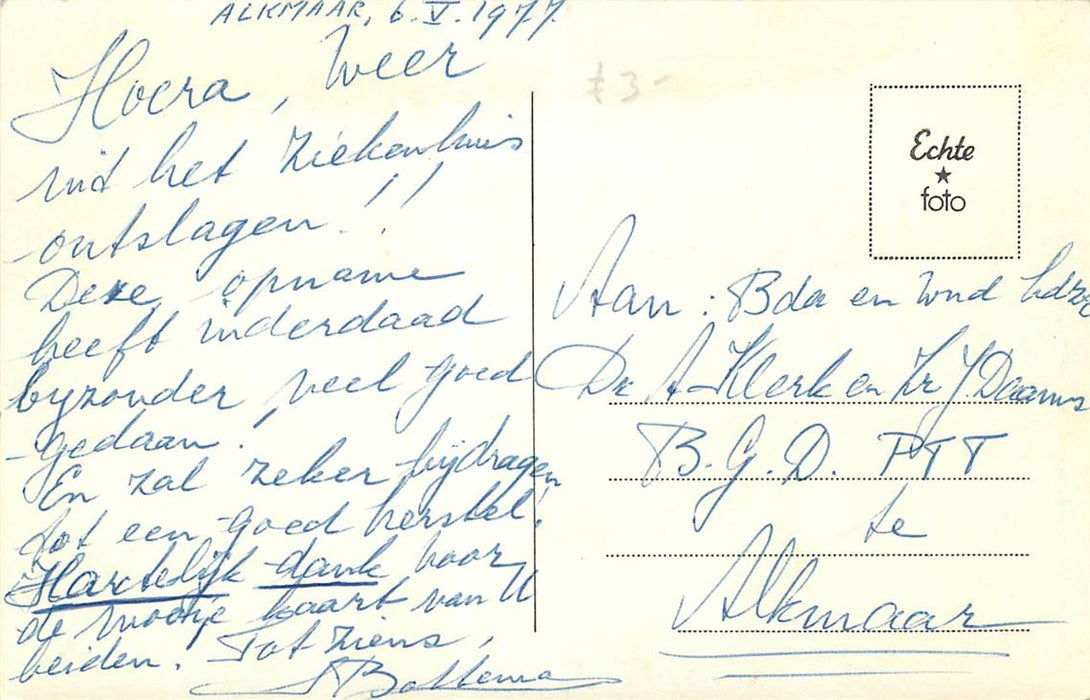 ALKMAAR, 6.V.1977.
Hoera, weer
uit het ziekenhuis
ontslagen!!!
Deze opname
heeft inderdaad
byzonder veel goed
gedaan!
En zal zeker bijdragen
tot een goed herstel!
Hartelijk dank voor
de mooie kaart van U
beiden. Tot ziens,
Bottema
£3-
Echte
foto
Aan: Bda en
Dr A Klerk en Zr J Daams
B.G.D. PTT
te
Alkmaar